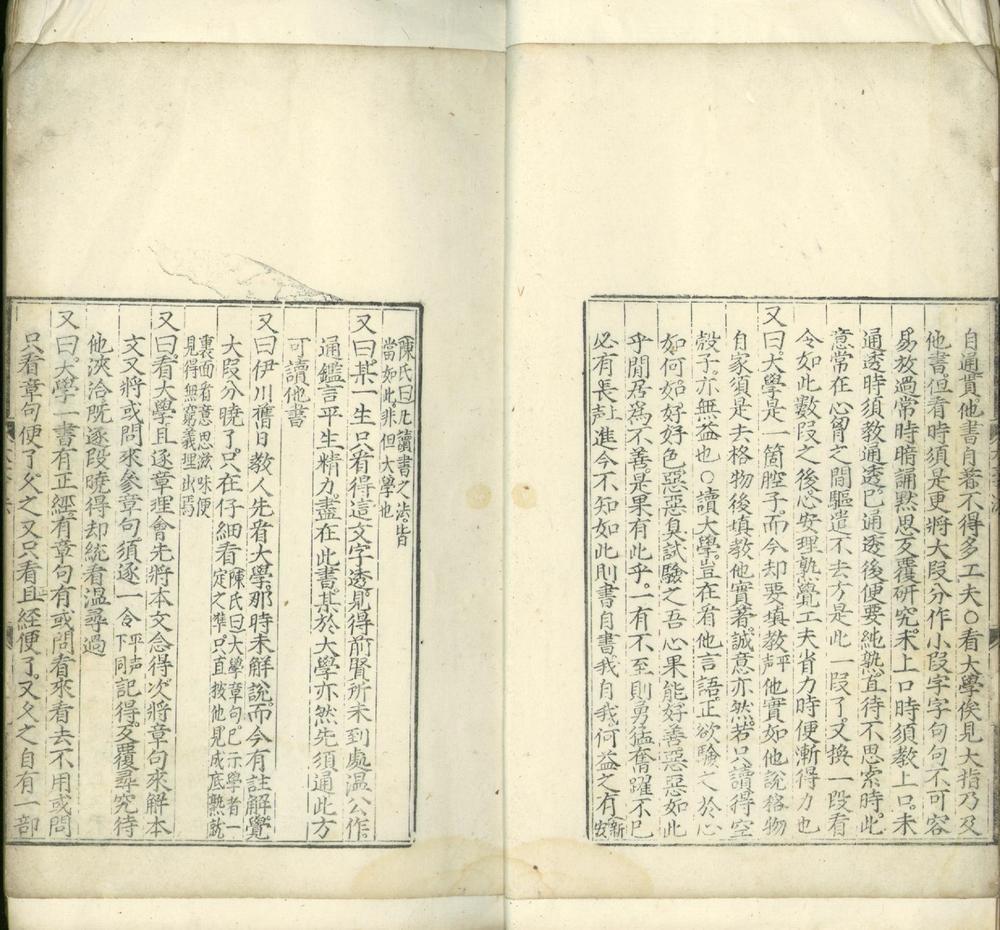 自通貫他書自著不得多工夫○看大學俟見大指乃及
他書但看時須是更將大段分作小段字字句句不可容
易放過常時暗誦默思反覆研究未上口時須教上口未
通透時須教通透已通透後便要純熟直待不思索時此
意常在心胷之間驅遣不去方是此一段了又換一段看
令如此數段之後心安理熟覺工夫省力時便漸得力也
又曰大學是一箇腔子而今却要填教平声他實如他說格物
自家須是去格物後填教他實著誠意亦然若只讀得空
殼子亦無益也○讀大學豈在看他言語正欲驗之於心
如何如好好色惡惡臭試驗之吾心果能好善惡惡如此
乎閒居爲不善是果有此乎一有不至則勇猛奮躍不已
必有長進今不知如此則書自書我自我何益之有新安
陳氏曰凡讀書之法皆
當如此非但大學也
又曰某一生只看得這文字透見得前賢所未到處温公作
通鑑言平生精力盡在此書某於大學亦然先須通此方
可讀他書
又曰伊川舊日教人先看大學那時未解說而今有註解覺
大段分曉了只在仔細看陳氏曰大學章句已示學者一定之準只直披他見成底熟就
裏面看意思滋味便
見得無窮義理出焉
又曰看大學且逐章理會先將本文念得次將章句來解本
文又將或問來參章句須逐一令平声下同記得反覆尋究待
他浹洽既逐段曉得却統看温尋過
又曰大學一書有正經有章句有或問看來看去不用或問
只看章句便了久之又只看正經便了又久之自有一部